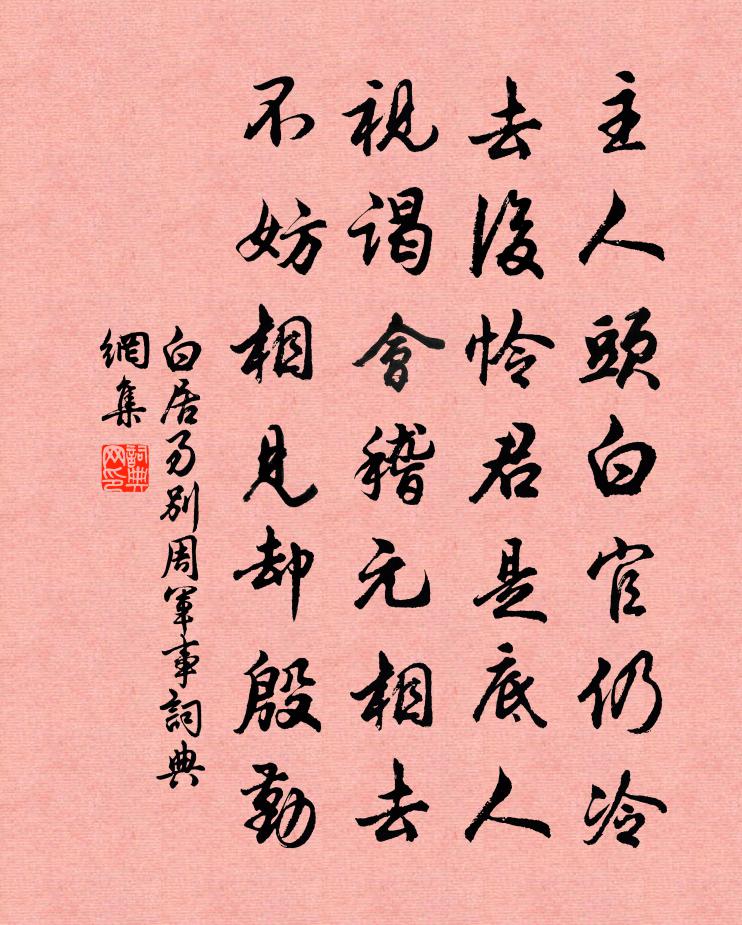 主人頭白官仍冷
去後怜君是底人
視謁會稽元相去
不妨相見却殷勤
白居易別周軍事詞典
網集
詞典
网印